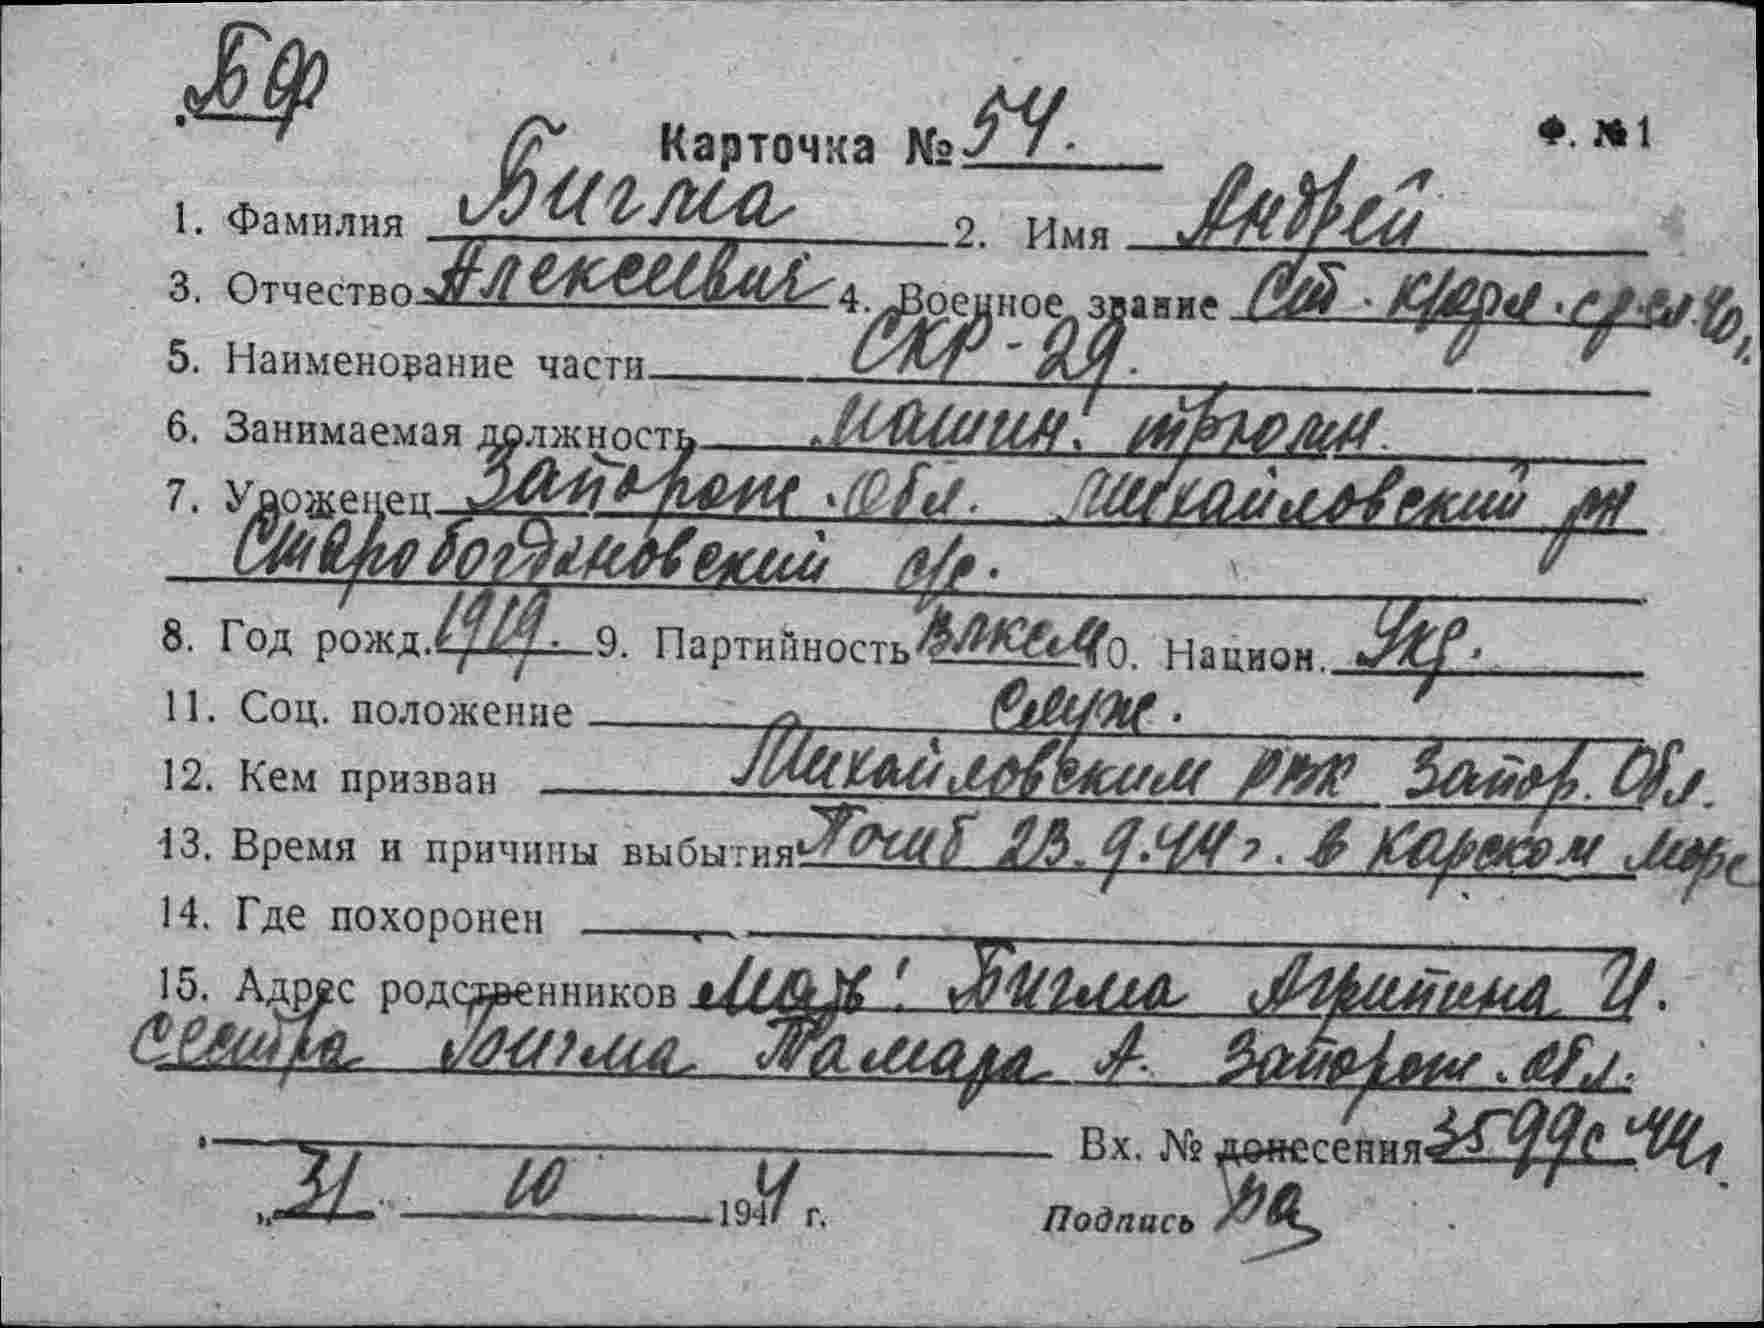 БФ
Карточка № 54. Ф. № 1
1. Фамилия Бигма 2. Имя Андрей
3. Отчество Алексеевич 4. Военное звание Ст. кр-фл. ср.сл. 40 г.
5. Наименование части СКР-29.
6. Занимаемая должность машин. трюмн.
7. Уроженец Запорож. Обл. Михайловский рн
Старобогдановский с/с.
8. Год рожд. 1919. 9. Партийность ВЛКСМ 10. Национ. Укр.
11. Соц. положение служ.
12. Кем призван Михайловским РВК Запор. Обл.
13. Время и причины выбытия Погиб 23.9.44 г. в Карском море
14. Где похоронен
15. Адрес родственников Мать: Бигма Агрипина И.
Сестра Бигма Тамара А. Запорож. обл.
Вх. № донесения 3599с 44 г.
„31" 10 1944 г. Подпись